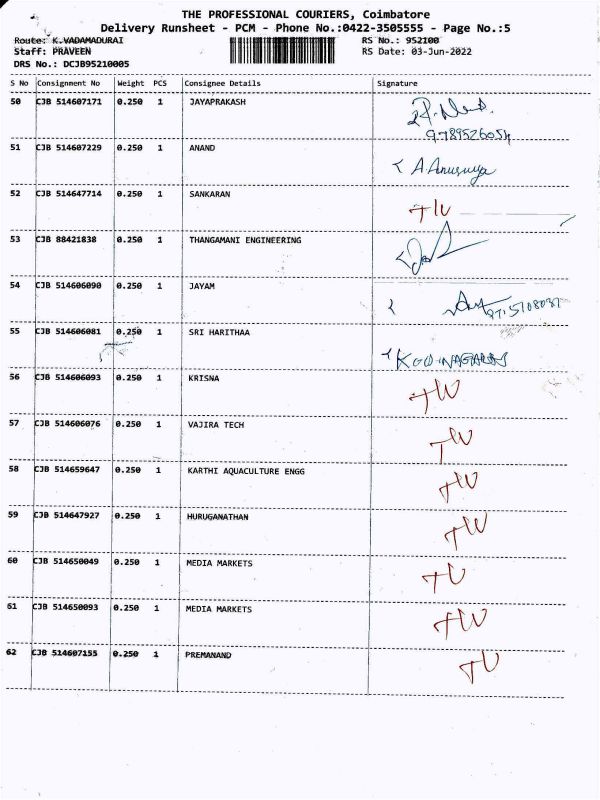 THE PROFESSIONAL COURIERS, Coimbatore
Delivery Runsheet - PCM - Phone No.:0422-3505555 - Page No.:5
Route: K.VADAMADURAI RS No.: 952100
Staff: PRAVEEN RS Date: 03-Jun-2022
DRS No.: DCJB95210005
S No Consignment No Weight PCS Consignee Details Signature
50 CJB 514607171 0.250 1 JAYAPRAKASH
51 CJB 514607229 0.250 1 ANAND A.Anusuya
52 CJB 514647714 0.250 1 SANKARAN
53 CJB 88421838 0.250 1 THANGAMANI ENGINEERING
54 CJB 514606090 0.250 1 JAYAM
55 CJB 514606081 0.250 1 SRI HARITHAA
56 CJB 514606093 0.250 1 KRISNA
57 CJB 514606076 0.250 1 VAJIRA TECH
58 CJB 514659647 0.250 1 KARTHI AQUACULTURE ENGG
59 CJB 514647927 0.250 1 HURUGANATHAN
60 CJB 514650049 0.250 1 MEDIA MARKETS
61 CJB 514650093 0.250 1 MEDIA MARKETS
62 CJB 514607155 0.250 1 PREMANAND